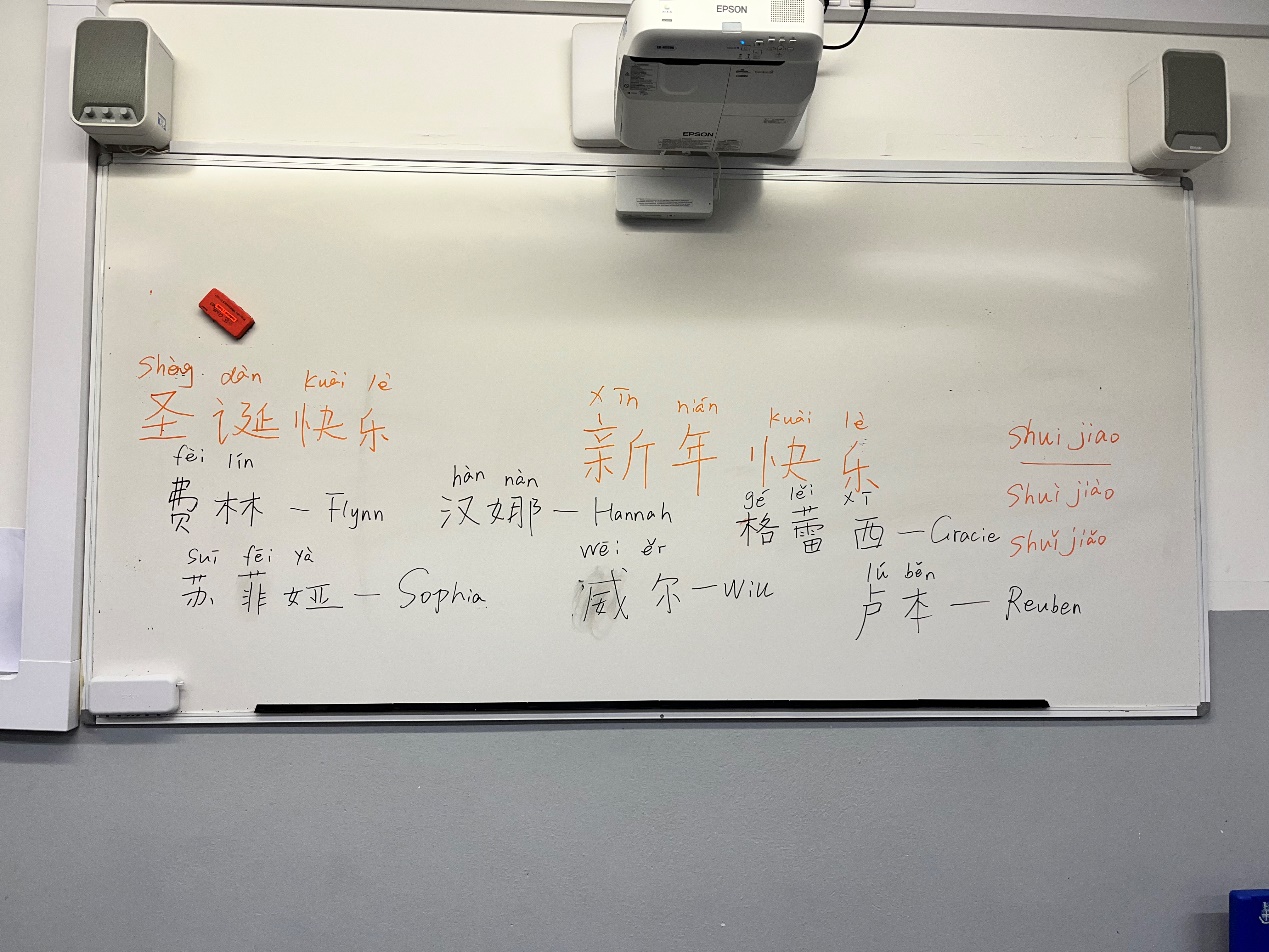 EPSON
EPSON
shèng dàn kuài lè
圣诞快乐
xīn nián kuài lè
新年快乐
shui jiao
shuì jiào
shuǐ jiǎo
fèi lín
费林 — Flynn
hàn nàn
汉娜 — Hannah
gé lěi xī
格蕾西 — Gracie
suī fēi yà
苏菲娅 — Sophia
wēi ěr
威尔 — Will
lú běn
卢本 — Reuben